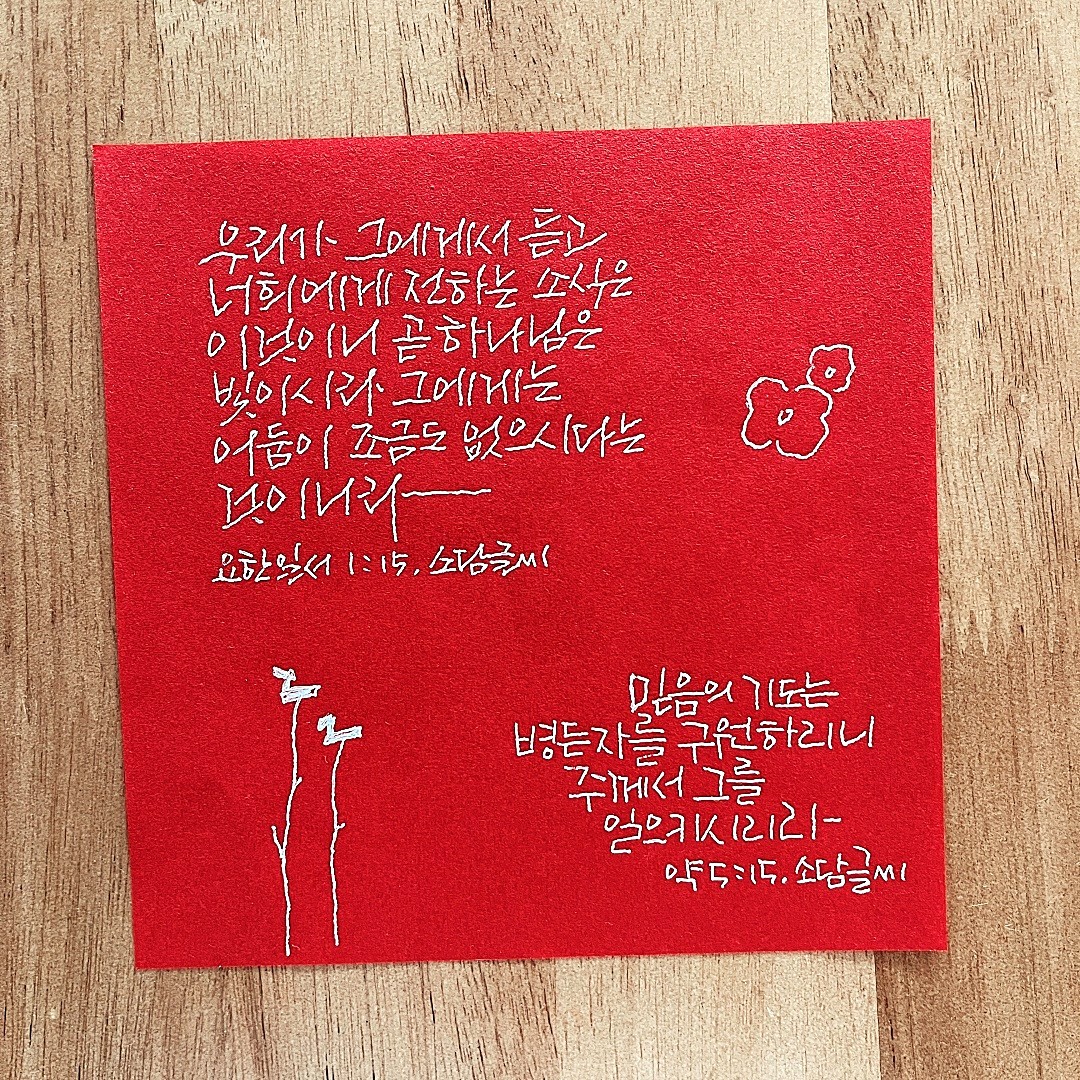 우리가 그에게서 듣고
너희에게 전하는 소식은
이것이니 곧 하나님은
빛이시라 그에게는
어둠이 조금도 없으시다는
것이니라
요한일서 1:15. 소담글씨
믿음의 기도는
병든자를 구원하리니
주께서 그를
일으키시리라
약 5:15. 소담글씨